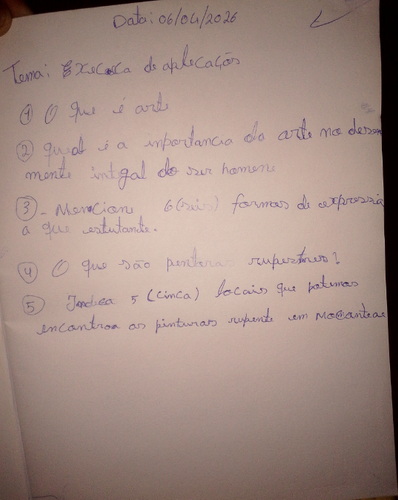 Data: 06/04/2026
Tema: Execoca de aplecações
1 O que é arte
2 qual é a inportancia do arte no desen
mente intgal do ser homem
3 - Mencione 6 (seis) formas de expressiã
a que estutante.
4 O que são pinturas rupestres?
5 Indica 5 (cinca) locais que potimas
encantroa as pinturas rupente em